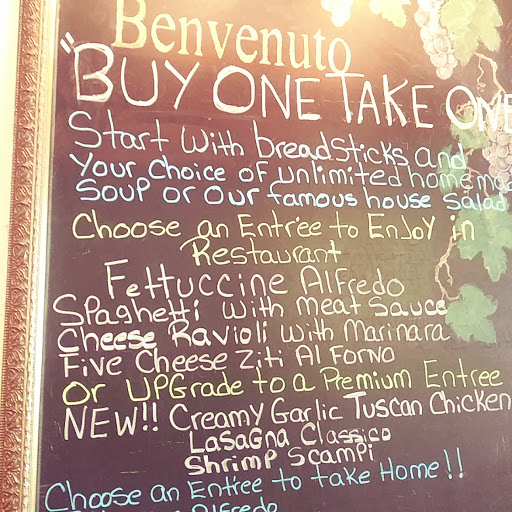 Benvenuto
"BUY ONE TAKE ONE
Start with breadsticks and
Your Choice of unlimited homema
Soup or our famous house salad
Choose an Entrée to Enjoy in
Restaurant
Fettuccine Alfredo
Spaghetti with meat sauce
Cheese Ravioli with Marinara
Five Cheese Ziti Al Forno
Or UPGrade to a Premium Entree
NEW!! Creamy Garlic Tuscan Chicken
Lasagna Classico
Shrimp Scampi
Choose an Entrée to take Home!!
Alfredo